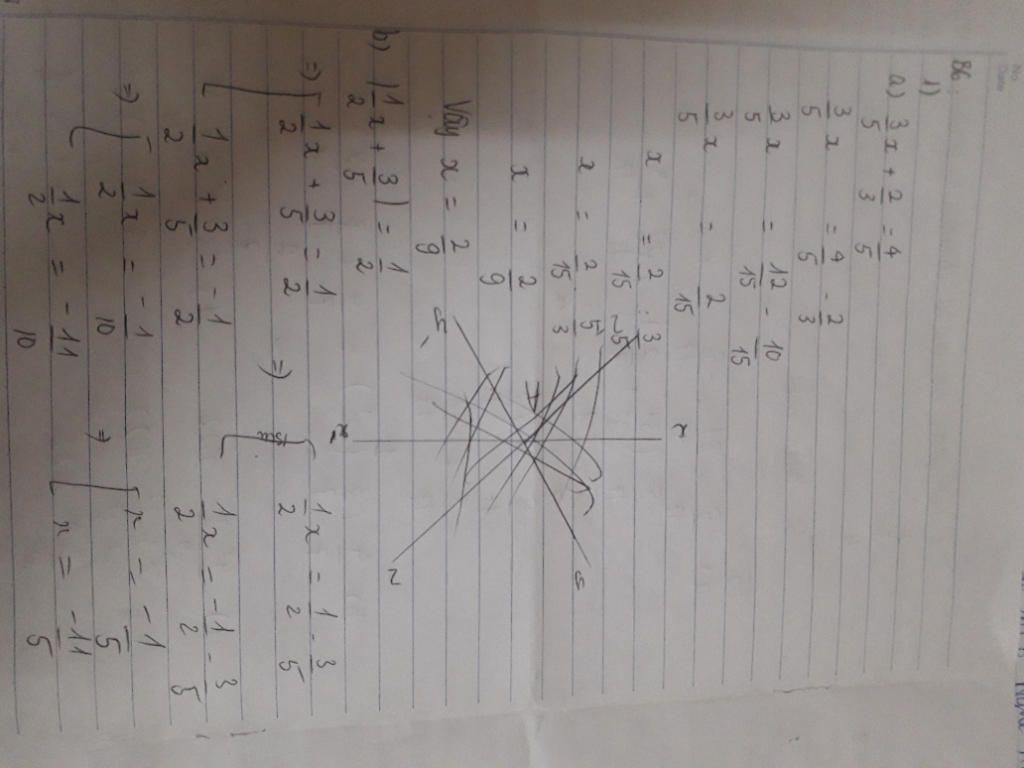 B6
1)
a) 3/5 x + 2/3 = 4/5
3/5 x = 4/5 - 2/3
3/5 x = 12/15 - 10/15
3/5 x = 2/15
x = 2/15 : 3/5
x = 2/15 . 5/3
x = 2/9
Vậy x = 2/9
b) |1/2 x + 3/5| = 1/2
=> [ 1/2 x + 3/5 = 1/2
1/2 x + 3/5 = -1/2
=> [ 1/2 x = 1/2 - 3/5
1/2 x = -1/2 - 3/5
=> [ 1/2 x = -1/10
1/2 x = -11/10
=> [ x = -1/5
x = -11/5